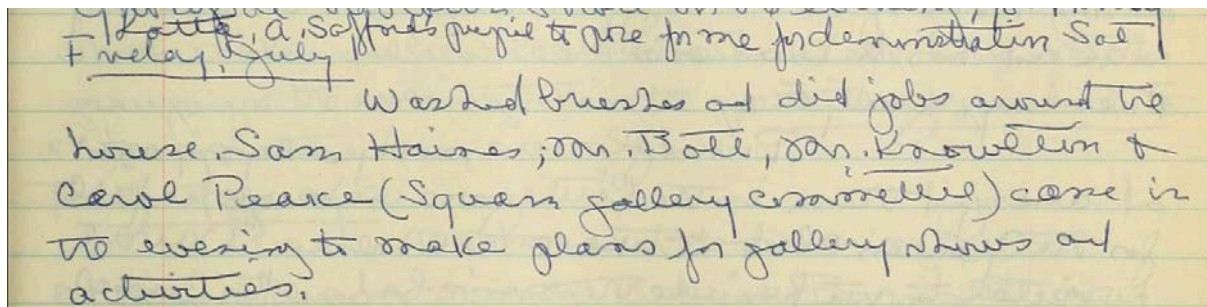 Latta, a. Safford's pupil to pose for me for demonstration Sat
Friday, July
Washed brushes and did jobs around the
house. Sam Haines, Mr. Boll, Mr. Knowlton &
Carol Pearce (Square gallery committee) came in
the evening to make plans for gallery shows and
activities.